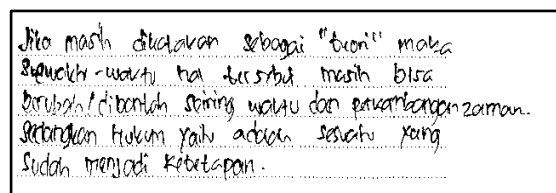 Jika masih dikatakan sebagai "teori" maka
sewaktu-waktu hal tersebut masih bisa
berubah/dibantah seiring waktu dan perkembangan zaman.
Sedangkan Hukum yaitu adalah sesuatu yang
sudah menjadi ketetapan.